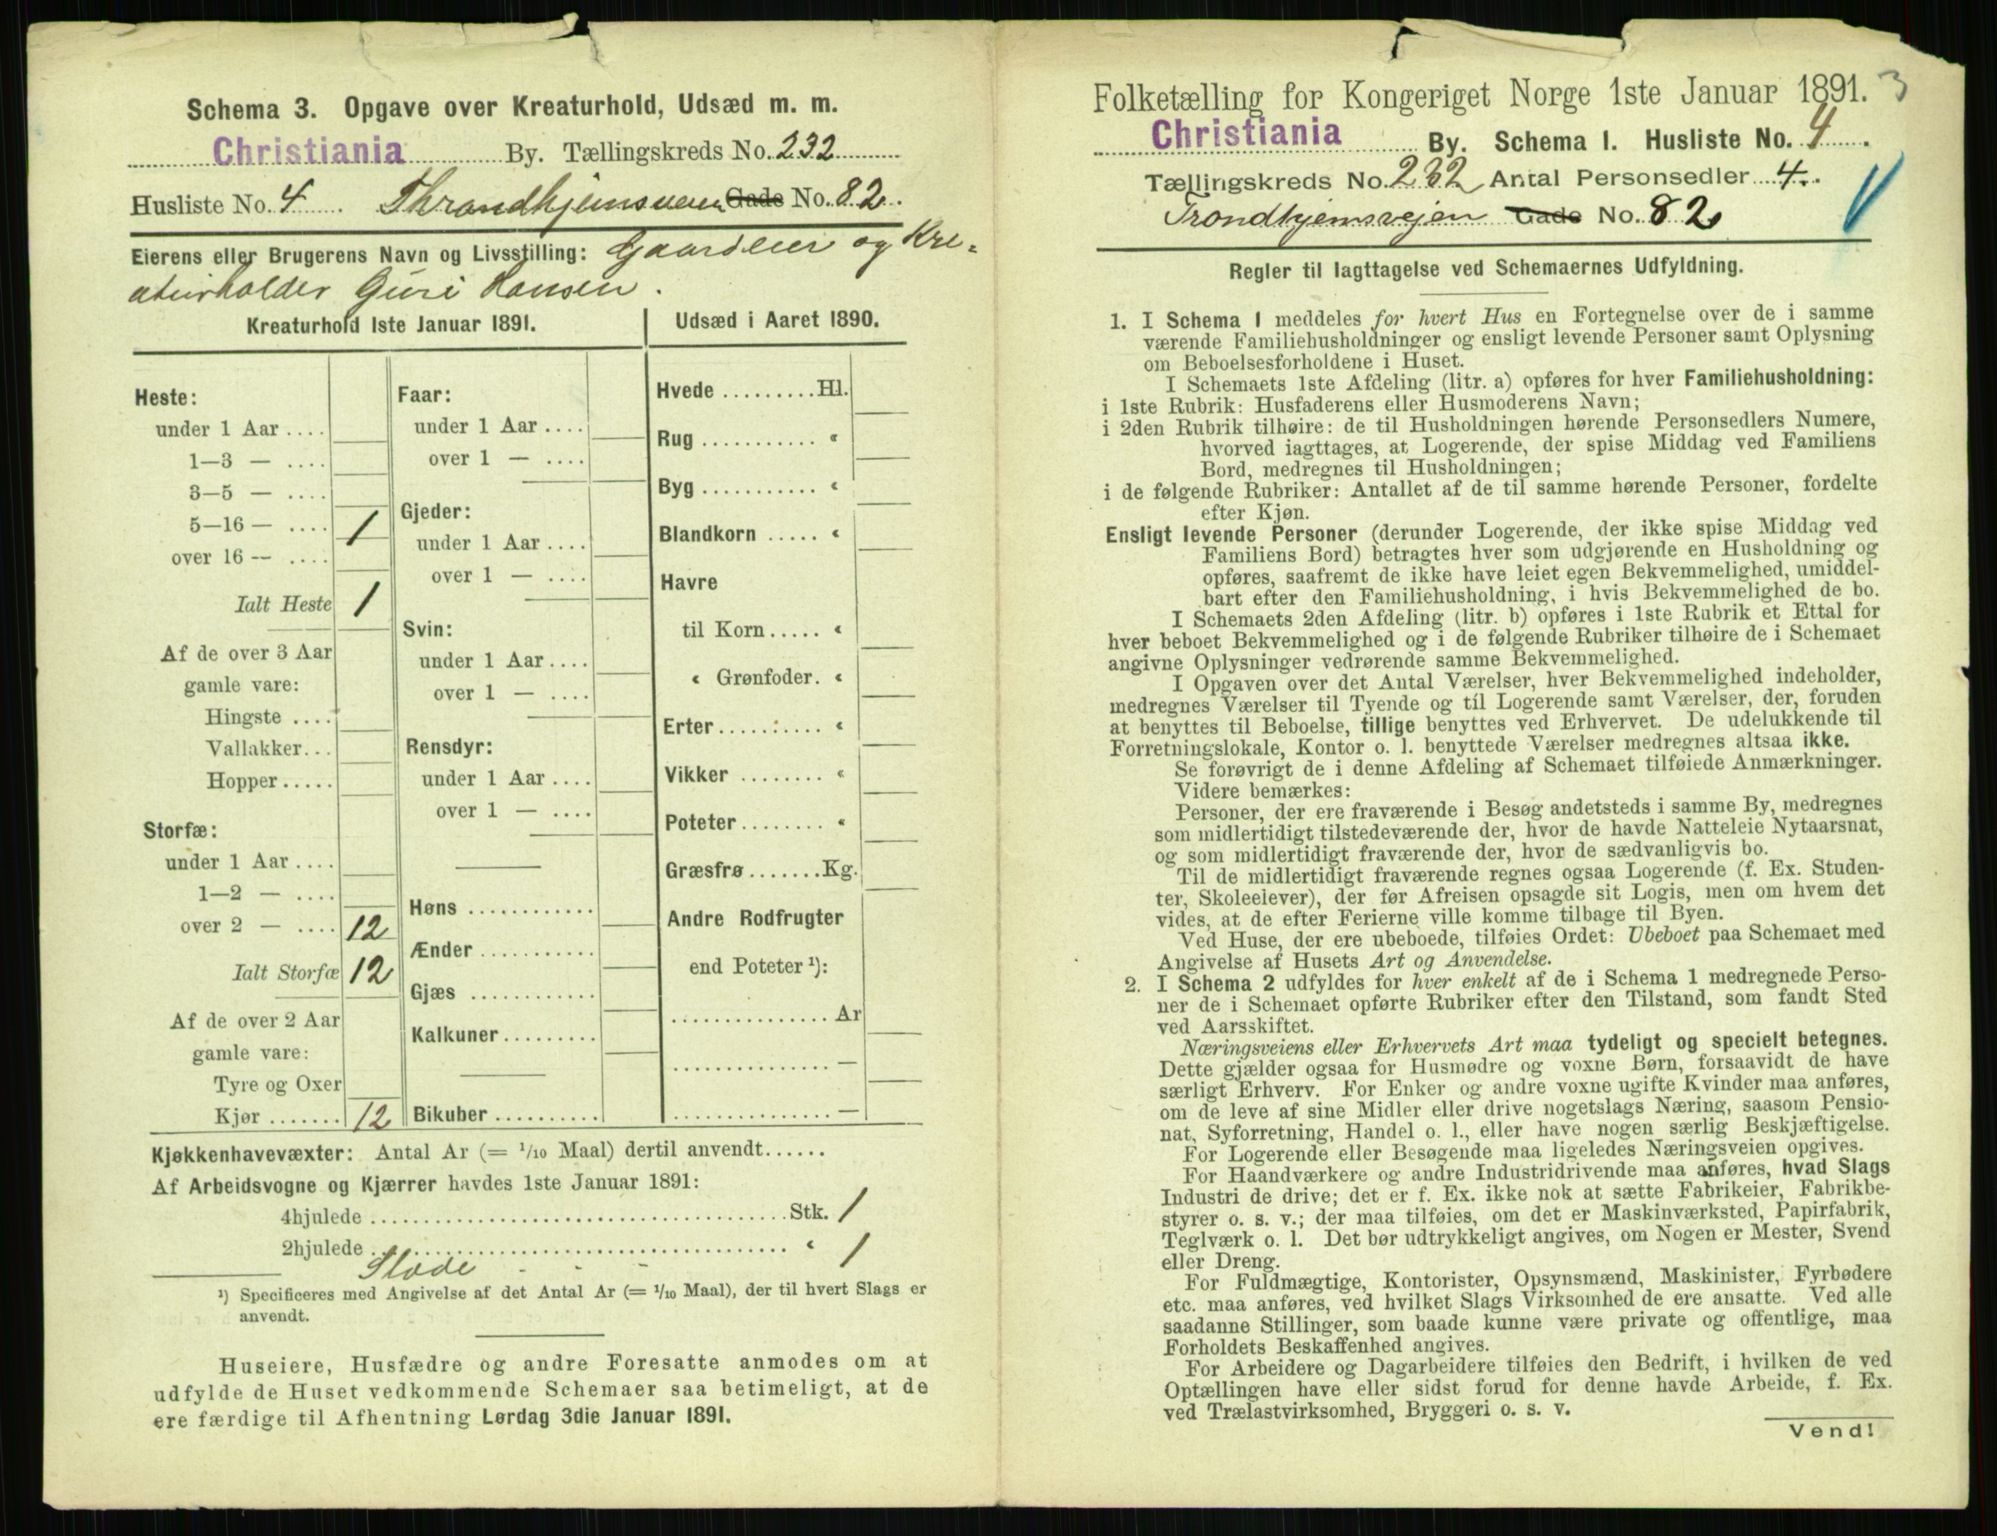 Schema 3. Opgave over Kreaturhold, Udsæd m. m.
Christiania By. Tællingskreds No. 232
Husliste No. 4 Throndhjemsveien Gade No. 82.
Eierens eller Brugerens Navn og Livsstilling: Gaardeier og Kre-
aturholder Guri Hansen.
Kreaturhold 1ste Januar 1891.
Heste:
under 1 Aar ....
1—3 — ....
3—5 — ....
5—16 — .... 1
over 16 — ....
Ialt Heste 1
Af de over 3 Aar
gamle vare:
Hingste ....
Vallakker...
Hopper.....
Storfæ:
under 1 Aar ....
1—2 — ....
over 2 — .... 12
Ialt Storfæ 12
Af de over 2 Aar
gamle vare:
Tyre og Oxer
Kjør ....... 12
Faar:
under 1 Aar ....
over 1 — ....
Gjeder:
under 1 Aar ....
over 1 — ....
Svin:
under 1 Aar ....
over 1 — ....
Rensdyr:
under 1 Aar ....
over 1 — ....
Høns ............
Ænder ...........
Gjæs ............
Kalkuner.........
Bikuber ..........
Udsæd i Aaret 1890.
Hvede .........Hl.
Rug ........... «
Byg ........... «
Blandkorn ..... «
Havre
til Korn..... «
« Grønfoder. «
Erter.......... «
Vikker ........ «
Poteter........ «
Græsfrø.......Kg.
Andre Rodfrugter
end Poteter ¹):
............... Ar
............... —
............... —
Kjøkkenhavevæxter: Antal Ar (= 1/10 Maal) dertil anvendt......
Af Arbeidsvogne og Kjærrer havdes 1ste Januar 1891:
4hjulede ........................................Stk. 1
2hjulede ........................................ « 1
Slæde - - -
¹) Specificeres med Angivelse af det Antal Ar (= 1/10 Maal), der til hvert Slags er
anvendt.
Huseiere, Husfædre og andre Foresatte anmodes om at
udfylde de Huset vedkommende Schemaer saa betimeligt, at de
ere færdige til Afhentning Lørdag 3die Januar 1891.
Folketælling for Kongeriget Norge 1ste Januar 1891. 3
Christiania By. Schema 1. Husliste No. 4.
Tællingskreds No. 232 Antal Personsedler 4.
Trondhjemsvejen Gade No. 82
Regler til Iagttagelse ved Schemaernes Udfyldning.
1. I Schema 1 meddeles for hvert Hus en Fortegnelse over de i samme
værende Familiehusholdninger og ensligt levende Personer samt Oplysning
om Beboelsesforholdene i Huset.
I Schemaets 1ste Afdeling (litr. a) opføres for hver Familiehusholdning:
i 1ste Rubrik: Husfaderens eller Husmoderens Navn;
i 2den Rubrik tilhøire: de til Husholdningen hørende Personsedlers Numere,
hvorved iagttages, at Logerende, der spise Middag ved Familiens
Bord, medregnes til Husholdningen;
i de følgende Rubriker: Antallet af de til samme hørende Personer, fordelte
efter Kjøn.
Ensligt levende Personer (derunder Logerende, der ikke spise Middag ved
Familiens Bord) betragtes hver som udgjørende en Husholdning og
opføres, saafremt de ikke have leiet egen Bekvemmelighed, umiddel-
bart efter den Familiehusholdning, i hvis Bekvemmelighed de bo.
I Schemaets 2den Afdeling (litr. b) opføres i 1ste Rubrik et Ettal for
hver beboet Bekvemmelighed og i de følgende Rubriker tilhøire de i Schemaet
angivne Oplysninger vedrørende samme Bekvemmelighed.
I Opgaven over det Antal Værelser, hver Bekvemmelighed indeholder,
medregnes Værelser til Tyende og til Logerende samt Værelser, der, foruden
at benyttes til Beboelse, tillige benyttes ved Erhvervet. De udelukkende til
Forretningslokale, Kontor o. l. benyttede Værelser medregnes altsaa ikke.
Se forøvrigt de i denne Afdeling af Schemaet tilføiede Anmærkninger.
Videre bemærkes:
Personer, der ere fraværende i Besøg andetsteds i samme By, medregnes
som midlertidigt tilstedeværende der, hvor de havde Natteleie Nytaarsnat,
og som midlertidigt fraværende der, hvor de sædvanligvis bo.
Til de midlertidigt fraværende regnes ogsaa Logerende (f. Ex. Studen-
ter, Skoleelever), der før Afreisen opsagde sit Logis, men om hvem det
vides, at de efter Ferierne ville komme tilbage til Byen.
Ved Huse, der ere ubeboede, tilføies Ordet: Ubeboet paa Schemaet med
Angivelse af Husets Art og Anvendelse.
2. I Schema 2 udfyldes for hver enkelt af de i Schema 1 medregnede Perso-
ner de i Schemaet opførte Rubriker efter den Tilstand, som fandt Sted
ved Aarsskiftet.
Næringsveiens eller Erhvervets Art maa tydeligt og specielt betegnes.
Dette gjælder ogsaa for Husmødre og voxne Børn, forsaavidt de have
særligt Erhverv. For Enker og andre voxne ugifte Kvinder maa anføres,
om de leve af sine Midler eller drive nogetslags Næring, saasom Pensio-
nat, Syforretning, Handel o. l., eller have nogen særlig Beskjæftigelse.
For Logerende eller Besøgende maa ligeledes Næringsveien opgives.
For Haandværkere og andre Industridrivende maa anføres, hvad Slags
Industri de drive; det er f. Ex. ikke nok at sætte Fabrikeier, Fabrikbe-
styrer o. s. v.; der maa tilføies, om det er Maskinværksted, Papirfabrik,
Teglværk o. l. Det bør udtrykkeligt angives, om Nogen er Mester, Svend
eller Dreng.
For Fuldmægtige, Kontorister, Opsynsmænd, Maskinister, Fyrbødere
etc. maa anføres, ved hvilket Slags Virksomhed de ere ansatte. Ved alle
saadanne Stillinger, som baade kunne være private og offentlige, maa
Forholdets Beskaffenhed angives.
For Arbeidere og Dagarbeidere tilføies den Bedrift, i hvilken de ved
Optællingen have eller sidst forud for denne havde Arbeide, f. Ex.
ved Trælastvirksomhed, Bryggeri o. s. v.
Vend!